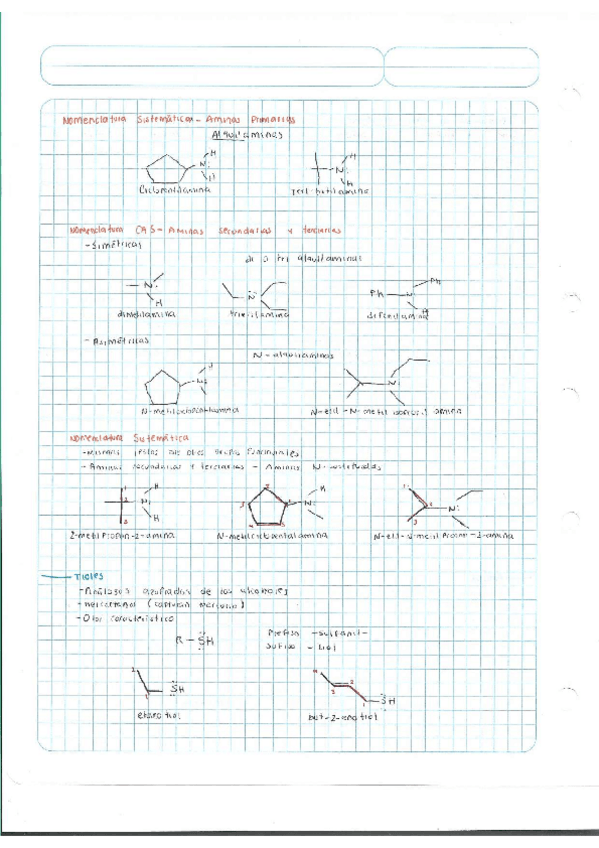 Nomenclatura Sistemática - Aminas Primarias
Alquilaminas
H
N:
H
H
N:
H
Ciclopentilamina
Tert-butilamina
Nomenclatura CAS - Aminas secundarias y terciarias
- Simétricas
di o tri alquilaminas
N:
H
N
Ph
Ph
N:
H
dimetilamina
trietilamina
difenilamina
- Asimétricas
N-alquilaminas
N:
N:
N-etil-N-metil isopropil amina
Nomenclatura Sistemática
- Aminas secundarias y terciarias - Aminas N-sustituidas
1
2
3
N:
H
H
H
N:
N:
2-metil Propan-2-amina
N-metilciclopentalamina
N-etil-N-metil Propan-2-amina
Tioles
- Análogos azufrados de los alcoholes
- mercaptanol (capturan mercurio)
- Olor característico
R - SH
Prefijo -sulfanil-
Sufijo - tiol
2
1
SH
4
3
2
1
SH
etanotiol
but-2-enotiol